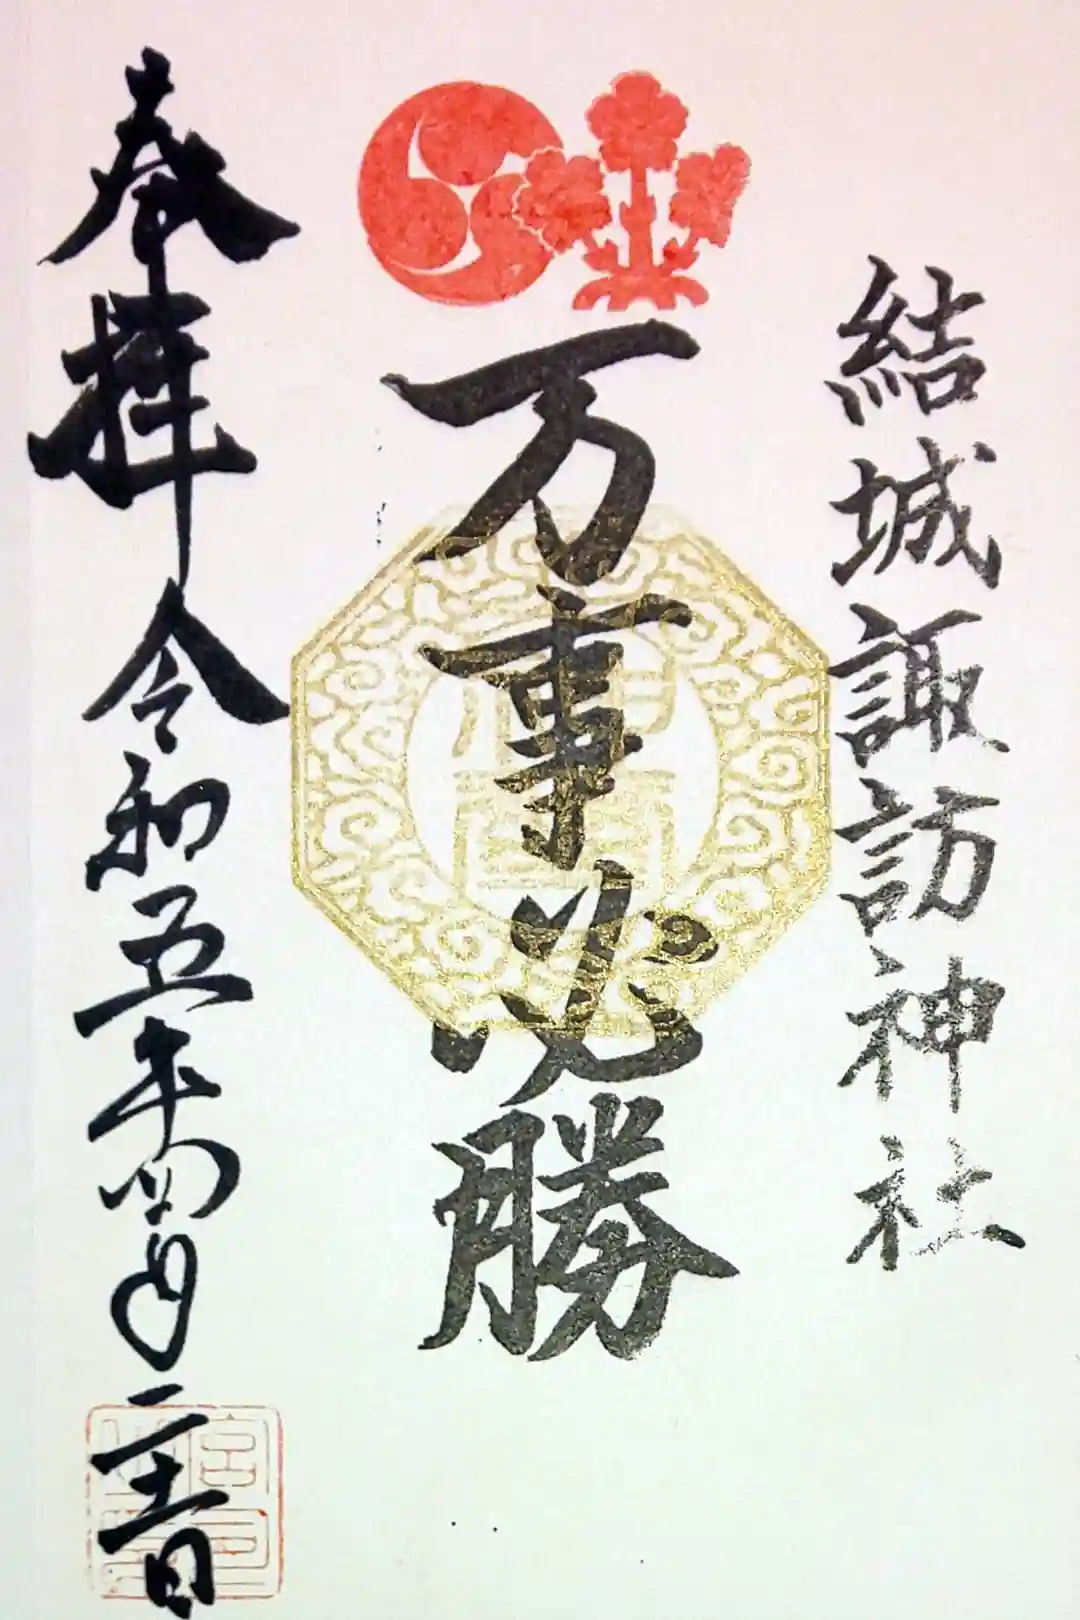 結城諏訪神社
万事必勝
奉拝 令和五年四月二十三日